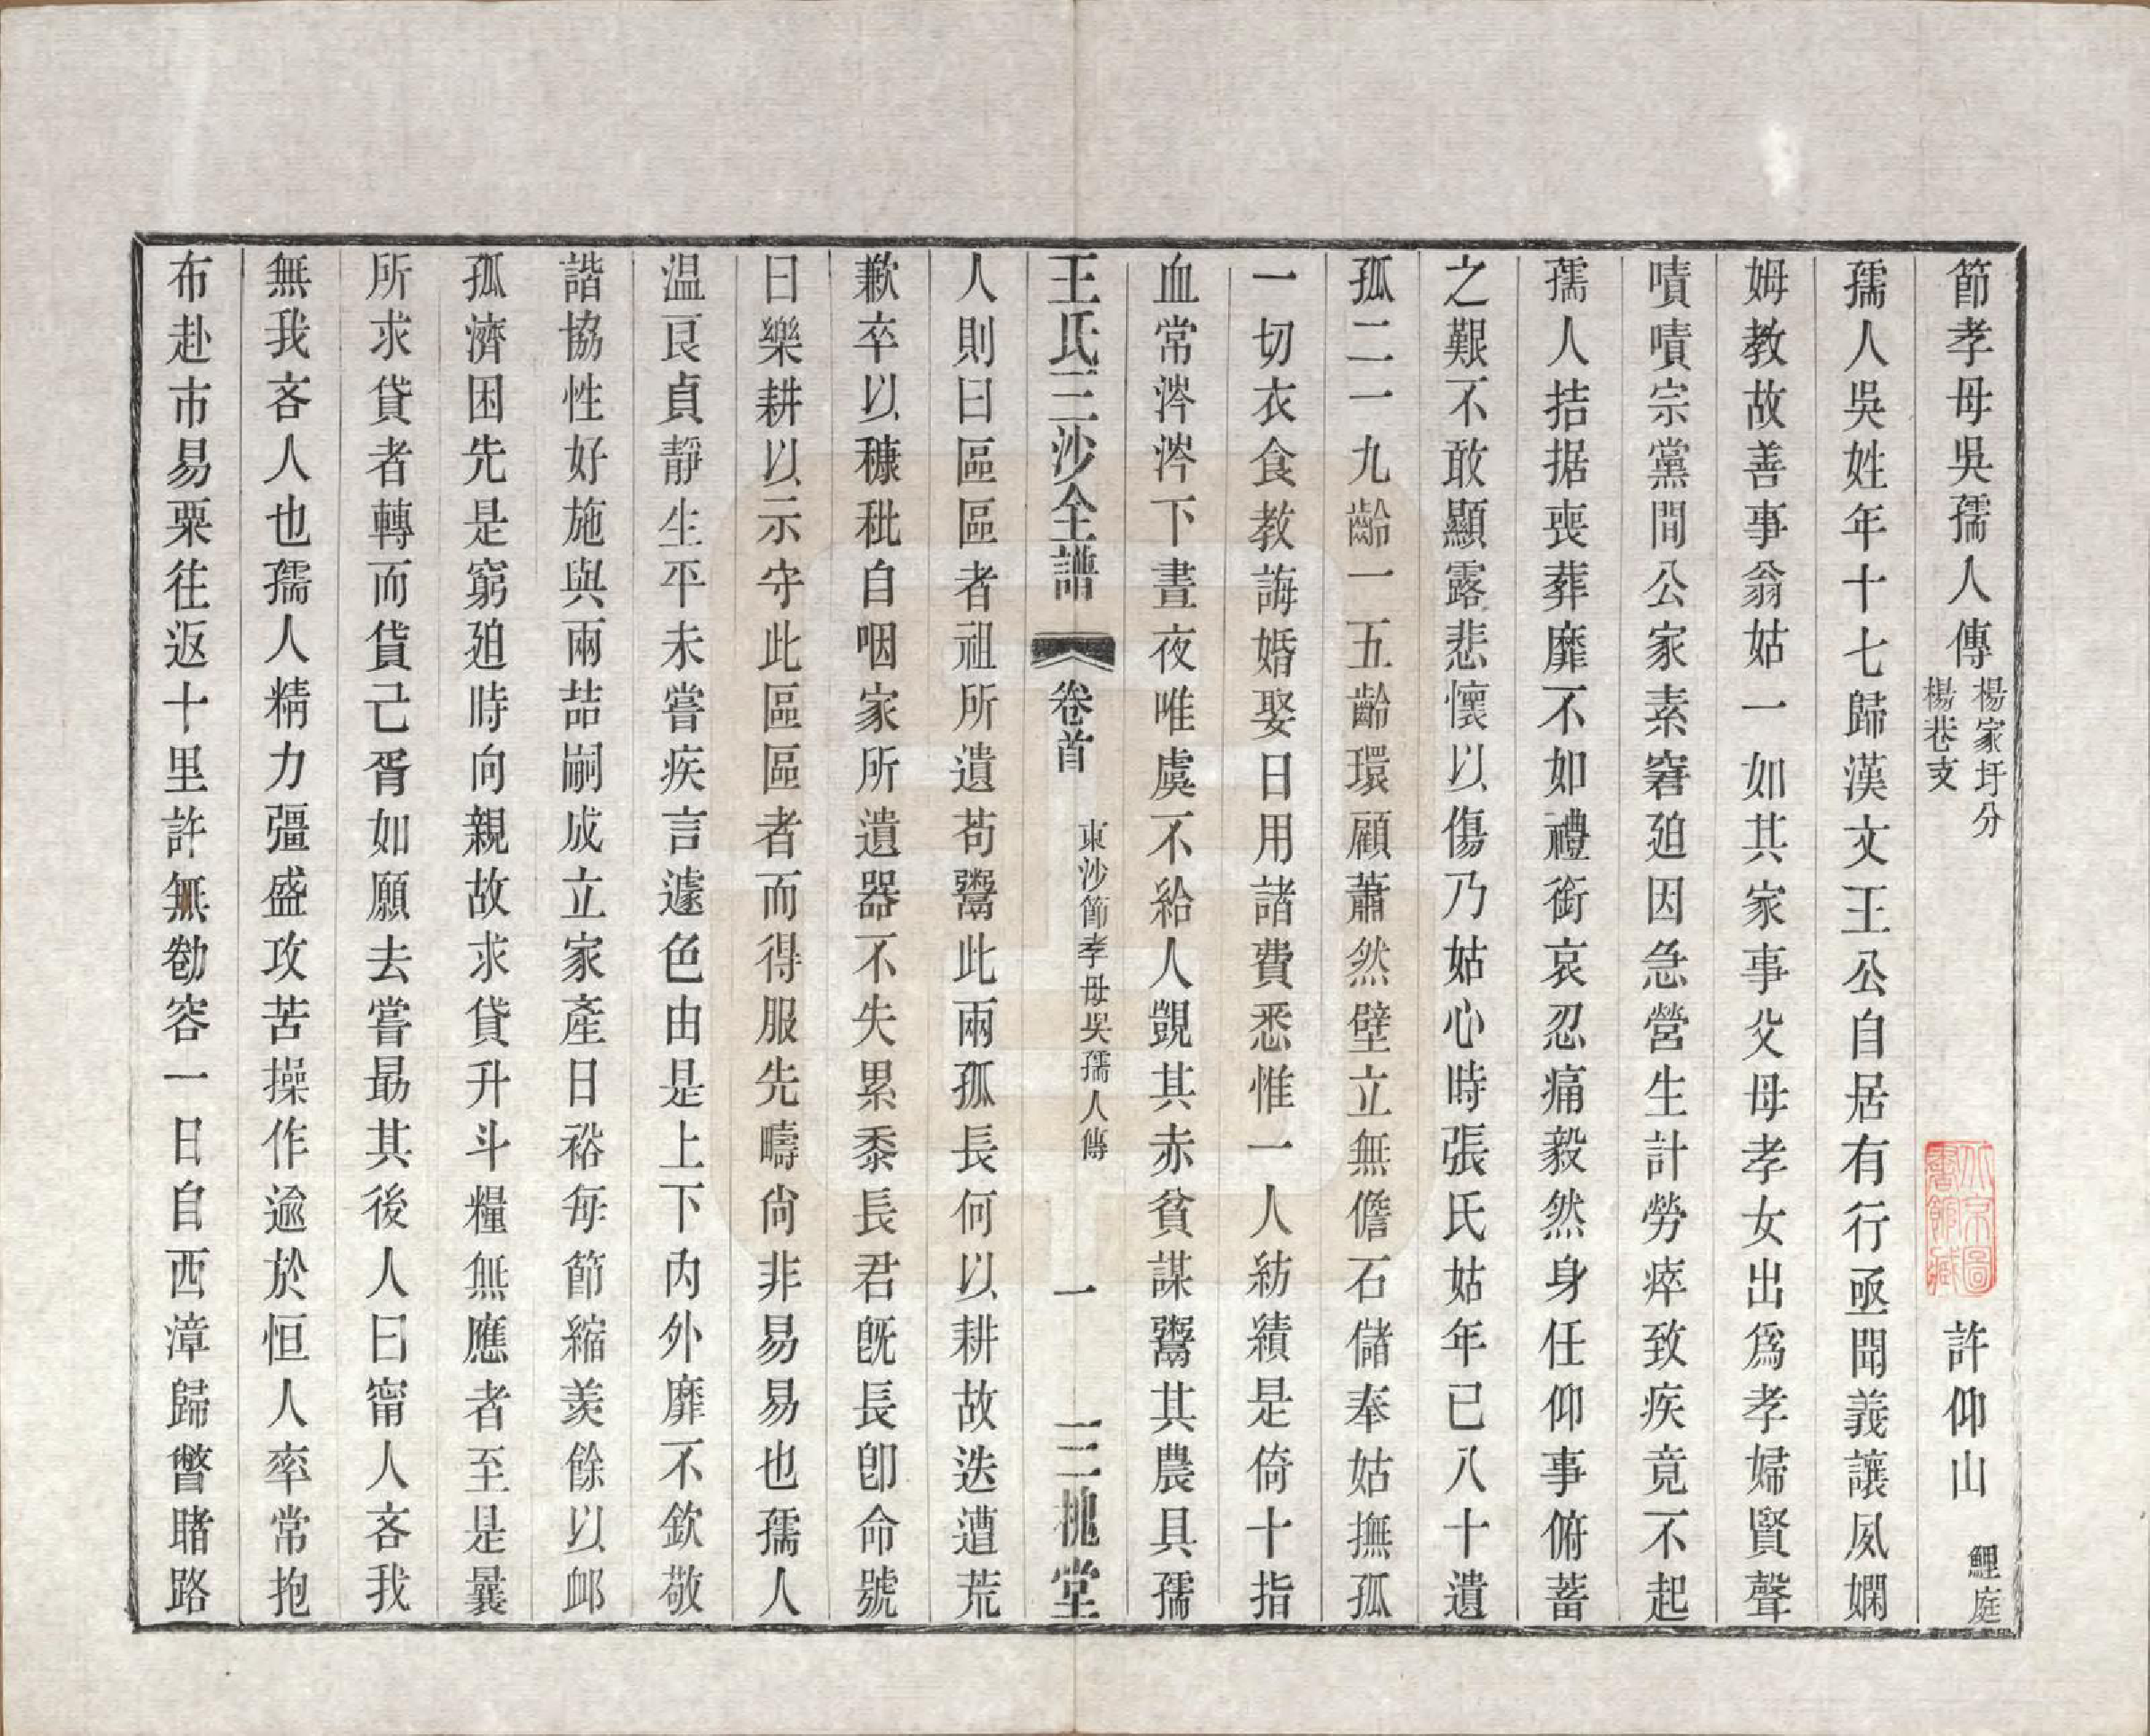 節孝母吳孺人傳 楊家圩分楊巷支 許仰山 鯉庭
孺人吳姓年十七歸漢文王公自居有行亟聞義讓夙嫻
姆教故善事翁姑一如其家事父母孝女出爲孝婦賢聲
嘖嘖宗黨間公家素窘廹因急營生計勞瘁致疾竟不起
孺人拮据喪葬靡不如禮銜哀忍痛毅然身任仰事俯蓄
之艱不敢顯露悲懷以傷乃姑心時張氏姑年已八十遺
孤二一九齡一五齡環顧蕭然壁立無儋石儲奉姑撫孤
一切衣食教誨婚娶日用諸費悉惟一人紡績是倚十指
血常涔涔下晝夜唯虞不給人覬其赤貧謀鬻其農具孺
王氏三沙全譜 卷首 東沙節孝母吳孺人傳 一 三槐堂
人則曰區區者祖所遺苟鬻此兩孤長何以耕故迭遭荒
歉卒以穅秕自咽家所遺器不失累黍長君旣長卽命號
曰樂耕以示守此區區者而得服先疇尙非易易也孺人
温艮貞靜生平未嘗疾言遽色由是上下內外靡不欽敬
諧協性好施與兩喆嗣成立家產日裕每節縮羨餘以䘏
孤濟困先是窮廹時向親故求貸升斗糧無應者至是曩
所求貸者轉而貸己胥如願去嘗勗其後人曰甯人吝我
無我吝人也孺人精力彊盛攻苦操作逾於恒人率常抱
布赴市易粟往返十里許無勌容一日自西漳歸瞥睹路